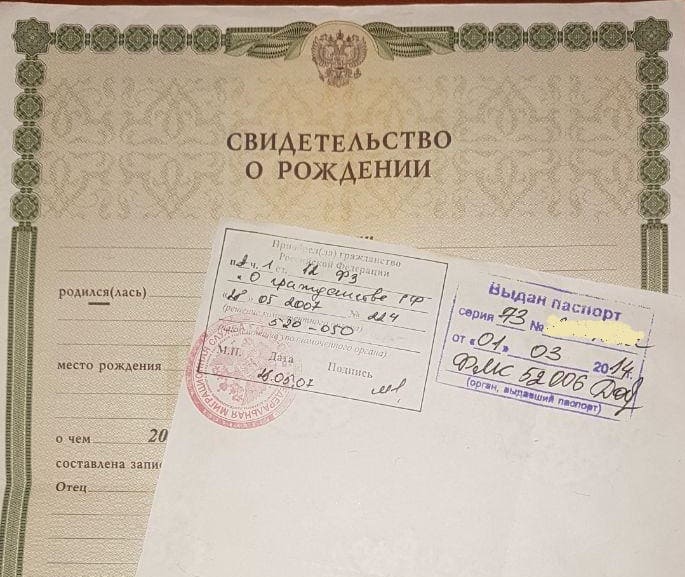 СВИДЕТЕЛЬСТВО
О РОЖДЕНИИ
родился(лась)
место рождения
о чем 20
составлена запи
Отец
Приобрел(ла) гражданство
Российской Федерации
ч. 1 ст. 12 ФЗ
"О гражданстве РФ
"28" 05 2007 № 224
520-050
М.П. Дата Подпись
28.05.07
ФЕДЕРАЛЬНАЯ МИГРАЦИОННАЯ
Выдан паспорт
серия 73 №
от «01» 03 2014 г.
ФМС 52006
(орган, выдавший паспорт)